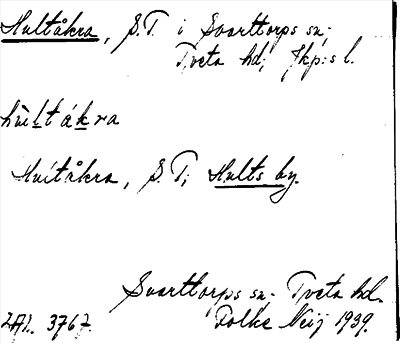 Hultåkra, S.T. i Svarttorps sn;
Tveta hd; Jkp:s l.
hùltákra
Hultåkra, S.T; Hults by.
Svarttorps sn. Tveta hd.
2701. 3767. Folke Neij 1939.